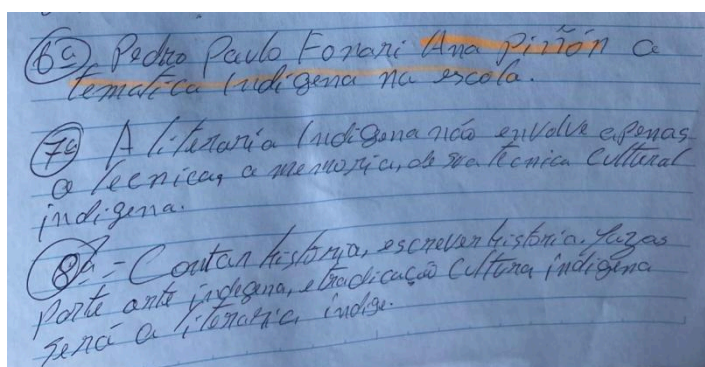 6ª Pedro Paulo Fonari Ana Piñón a
tematica Indigena na escola.
7ª A literaria Indigena não envolve apenas
a tecnica, a memoria, de sua tecnica Cultural
indigena.
8ª = Contar história, escrever história. fazas
Parte ante indegena, etradicação Cultura indigena
será a literaria indige.